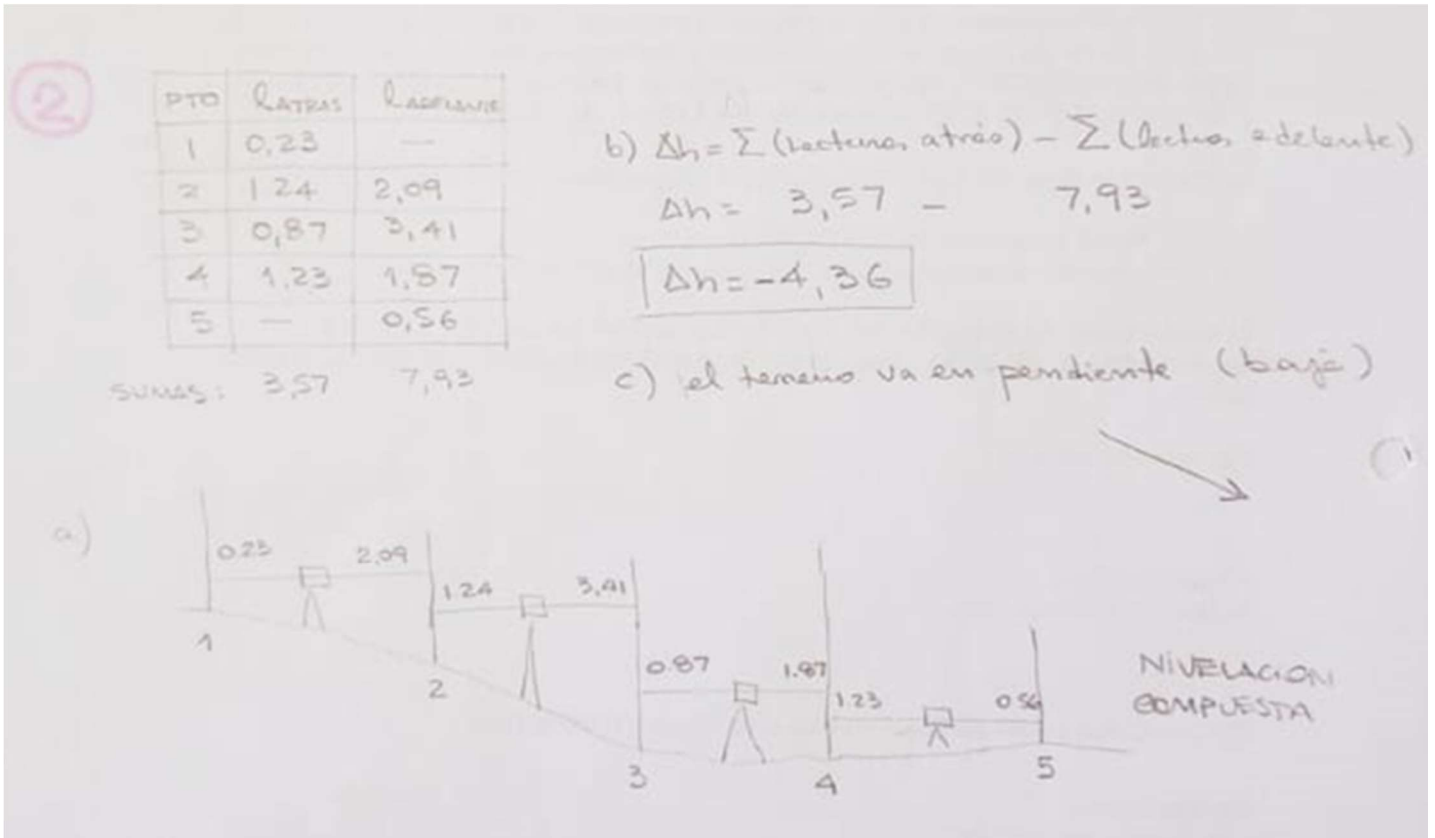 2
PTO lATRAS lADELANTE
1 0,23 —
2 1 24 2,09
3 0,87 3,41
4 1,23 1,87
5 — 0,56
SUMAS: 3,57 7,93
b) Δh = Σ (Lecturas atrás) - Σ (lecturas adelante)
Δh = 3,57 - 7,93
Δh = -4,36
c) el terreno va en pendiente (baja)
a)
0.23 2.09
1.24 3,41
0.87 1.87
1.23 0 56
1 2 3 4 5
NIVELACION
COMPUESTA